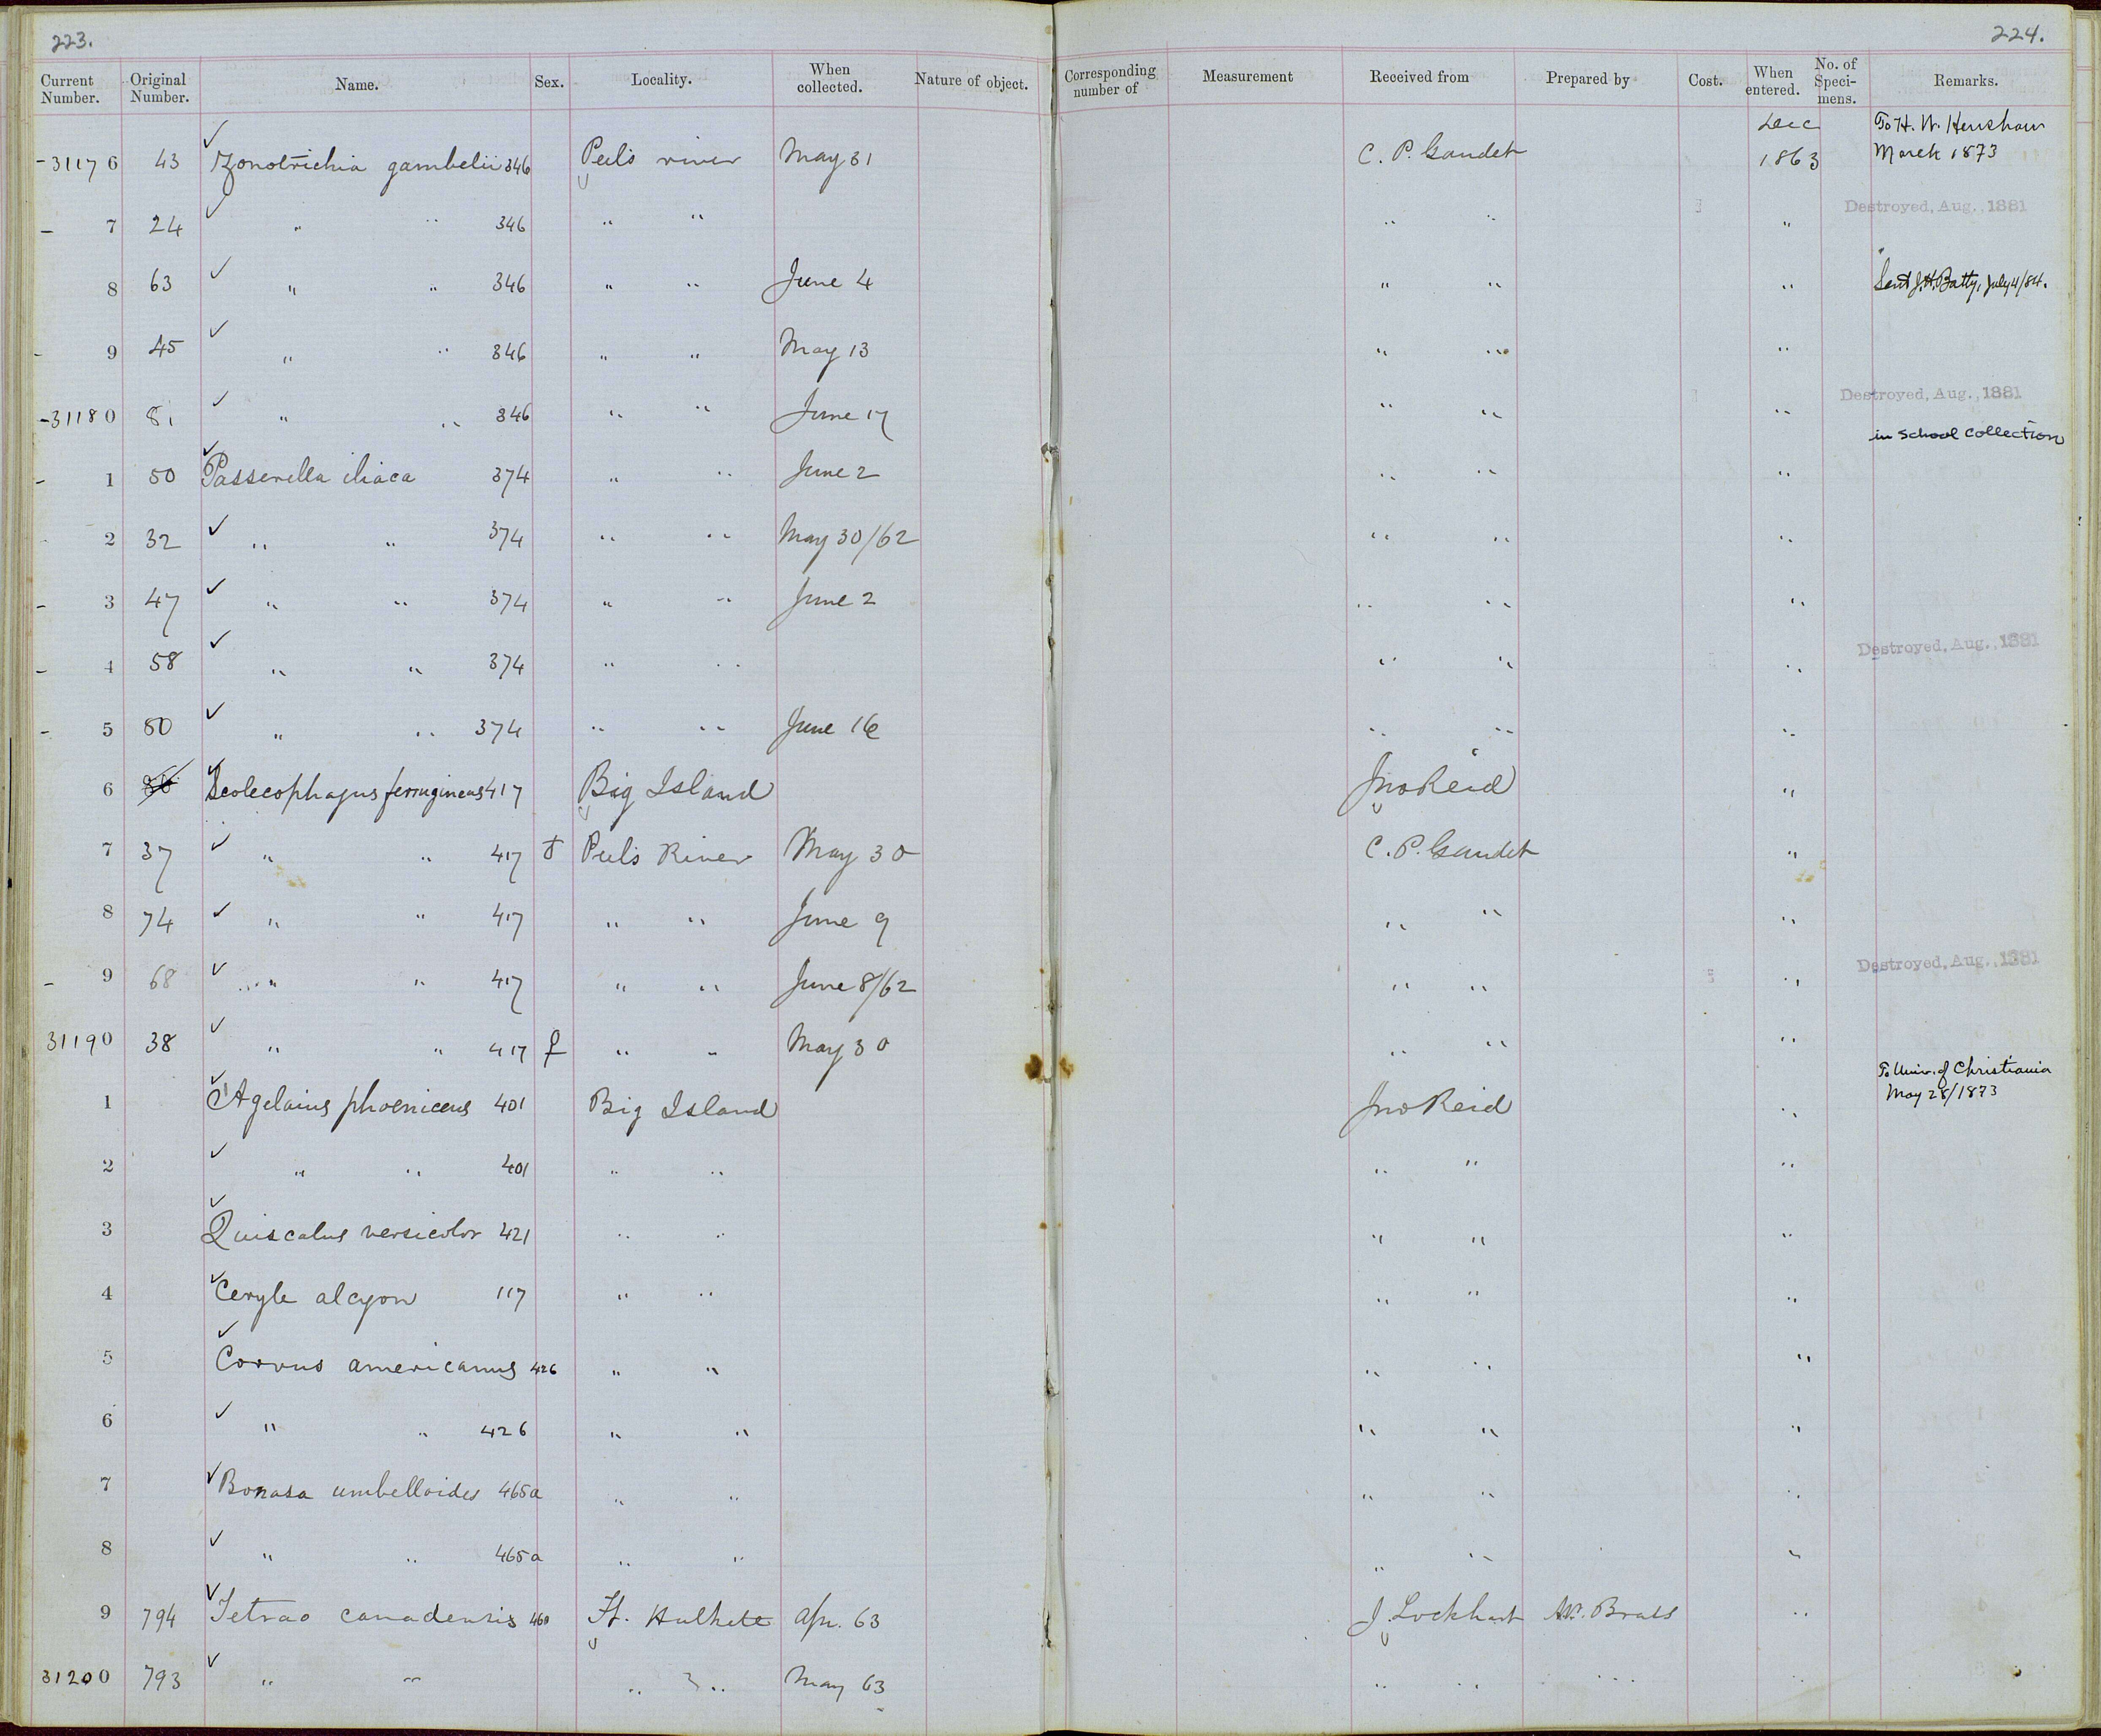 223.
224.
Current Number. Original Number. Name. Sex. Locality. When collected. Nature of object. Corresponding number of Measurement Received from Prepared by Cost. When entered. No. of Specimens. Remarks.
31176 43 Zonotrichia gambelii 346 Peels river May 31 C. P. Gaudet Dec 1863 To H. W. Henshaw March 1873
7 24 " " 346 " " " " " Destroyed, Aug., 1881
8 63 " " 346 " " June 4 " " " Sent J.H. Batty, July 4/84.
9 45 " " 346 " " May 13 " " "
31180 81 " " 346 " " June 17 " " " Destroyed, Aug., 1881
in School collection
1 50 Passerella iliaca 374 " " June 2 " " "
2 32 " " 374 " " May 30/62 " " "
3 47 " " 374 " " June 2 " " "
4 58 " " 374 " " " " " Destroyed, Aug., 1881
5 80 " " 374 " " June 16 " " "
6 Scolecophagus ferrugineus 417 Big Island Jno Reid "
7 37 " " 417 ♂ Peels River May 30 C. P. Gaudet "
8 74 " " 417 " " June 9 " " "
9 68 " " 417 " " June 8/62 " " " Destroyed, Aug., 1881
31190 38 " " 417 ♀ " " May 30 " " "
1 Agelaius phoeniceus 401 Big Island Jno Reid " To Univ. of Christiania May 28/1873
2 " " 401 " " " " "
3 Quiscalus versicolor 421 " " " " "
4 Ceryle alcyon 117 " " " " "
5 Corvus americanus 426 " " " " "
6 " " 426 " " " " "
7 Bonasa umbelloides 465a " " " " "
8 " " 465a " " " " "
9 794 Tetrao canadensis 460 Ft. Halkett Apr. 63 J. Lockhart "
31200 793 " " " " May 63 " " " "